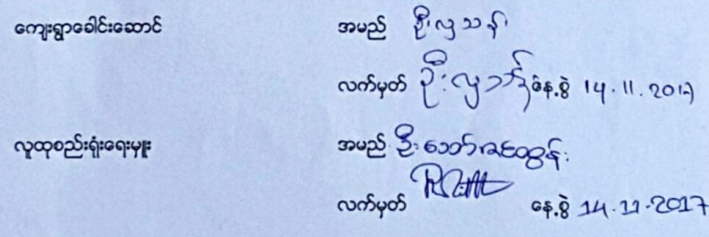 ကျေးရွာခေါင်းဆောင် အမည် ဦးလှသန်း
လက်မှတ် ဦးလှသန်း နေ့စွဲ 14.11.2017
လူထုစည်းရုံးရေးမှူး အမည် ဦး
လက်မှတ် နေ့စွဲ 14.11.2017